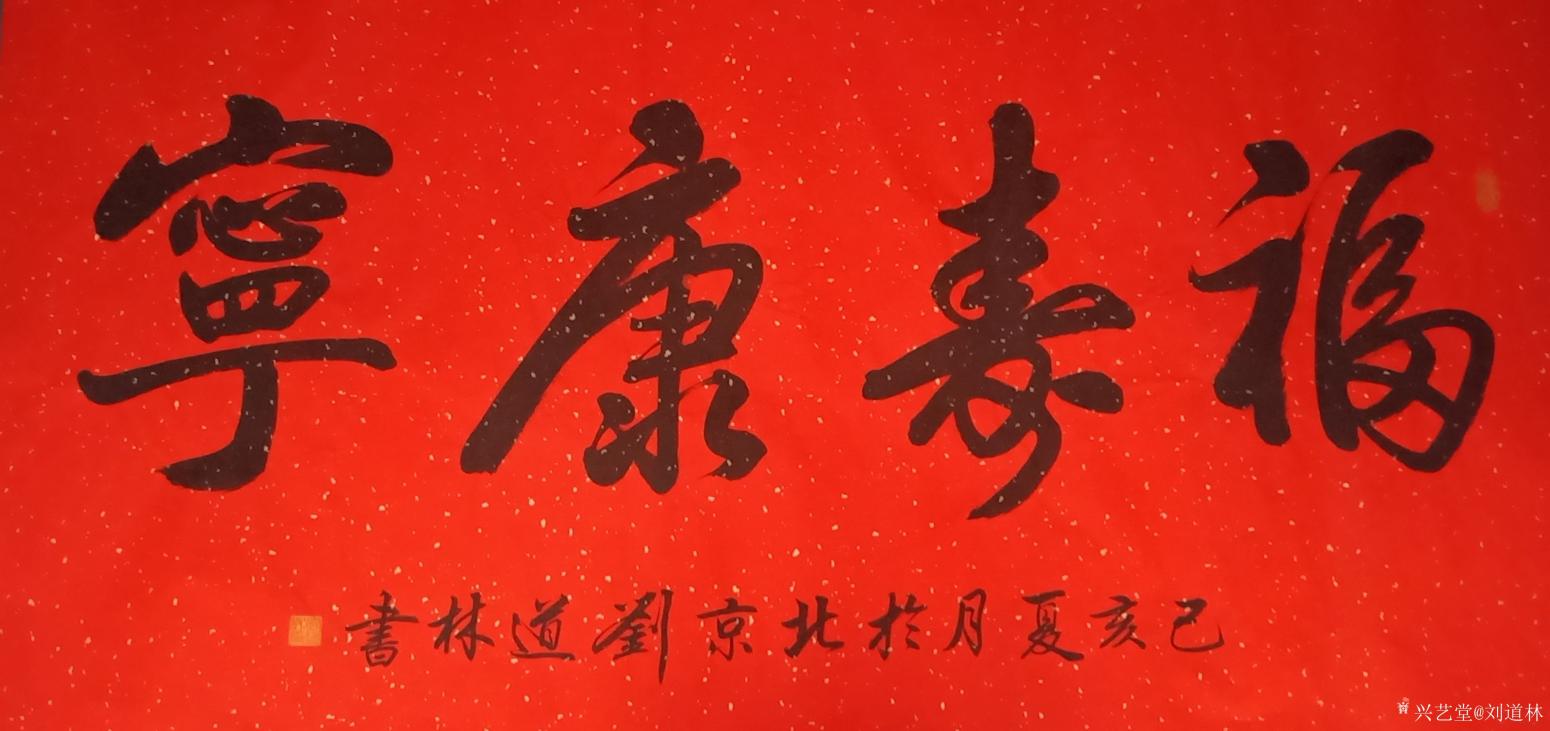 福壽康寧
己亥夏月於北京劉道林書
兴艺堂@刘道林